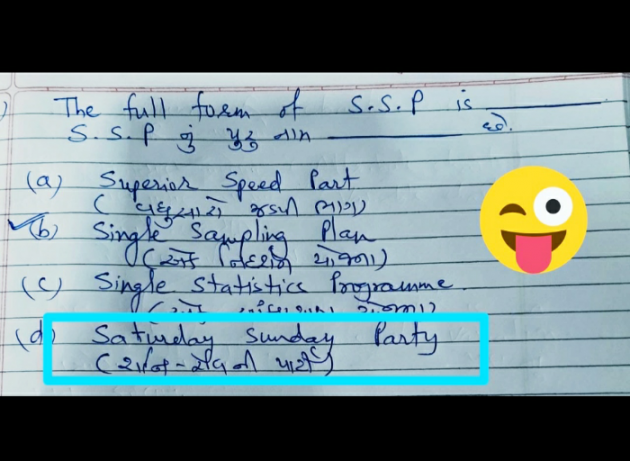 The full form of S.S.P is
S.S.P નું પુરું નામ છે.
(a) Superior Speed Part
( વધુ સારો ઝડપી ભાગ)
(b) Single Sampling Plan
(એક નિદર્શન યોજના)
(c) Single Statistics Programme.
(d) Saturday Sunday Party
(શનિ-રવિ ની પાર્ટી)